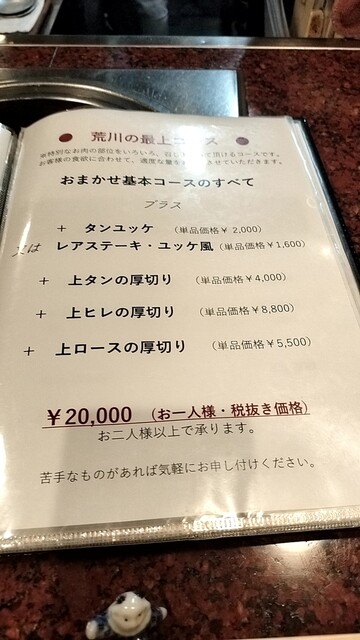 ● 荒川の最上コース ●
※特別なお肉の部位をいろいろ、召し上がって頂けるコースです。
お客様の食欲に合わせて、適度な量を させていただきます。
おまかせ基本コースのすべて
プラス
+ タンユッケ （単品価格￥2,000）
又は レアステーキ・ユッケ風（単品価格￥1,600）
+ 上タンの厚切り （単品価格￥4,000）
+ 上ヒレの厚切り （単品価格￥8,800）
+ 上ロースの厚切り （単品価格￥5,500）
￥20,000 （お一人様・税抜き価格）
お二人様以上で承ります。
苦手なものがあれば気軽にお申し付けください。